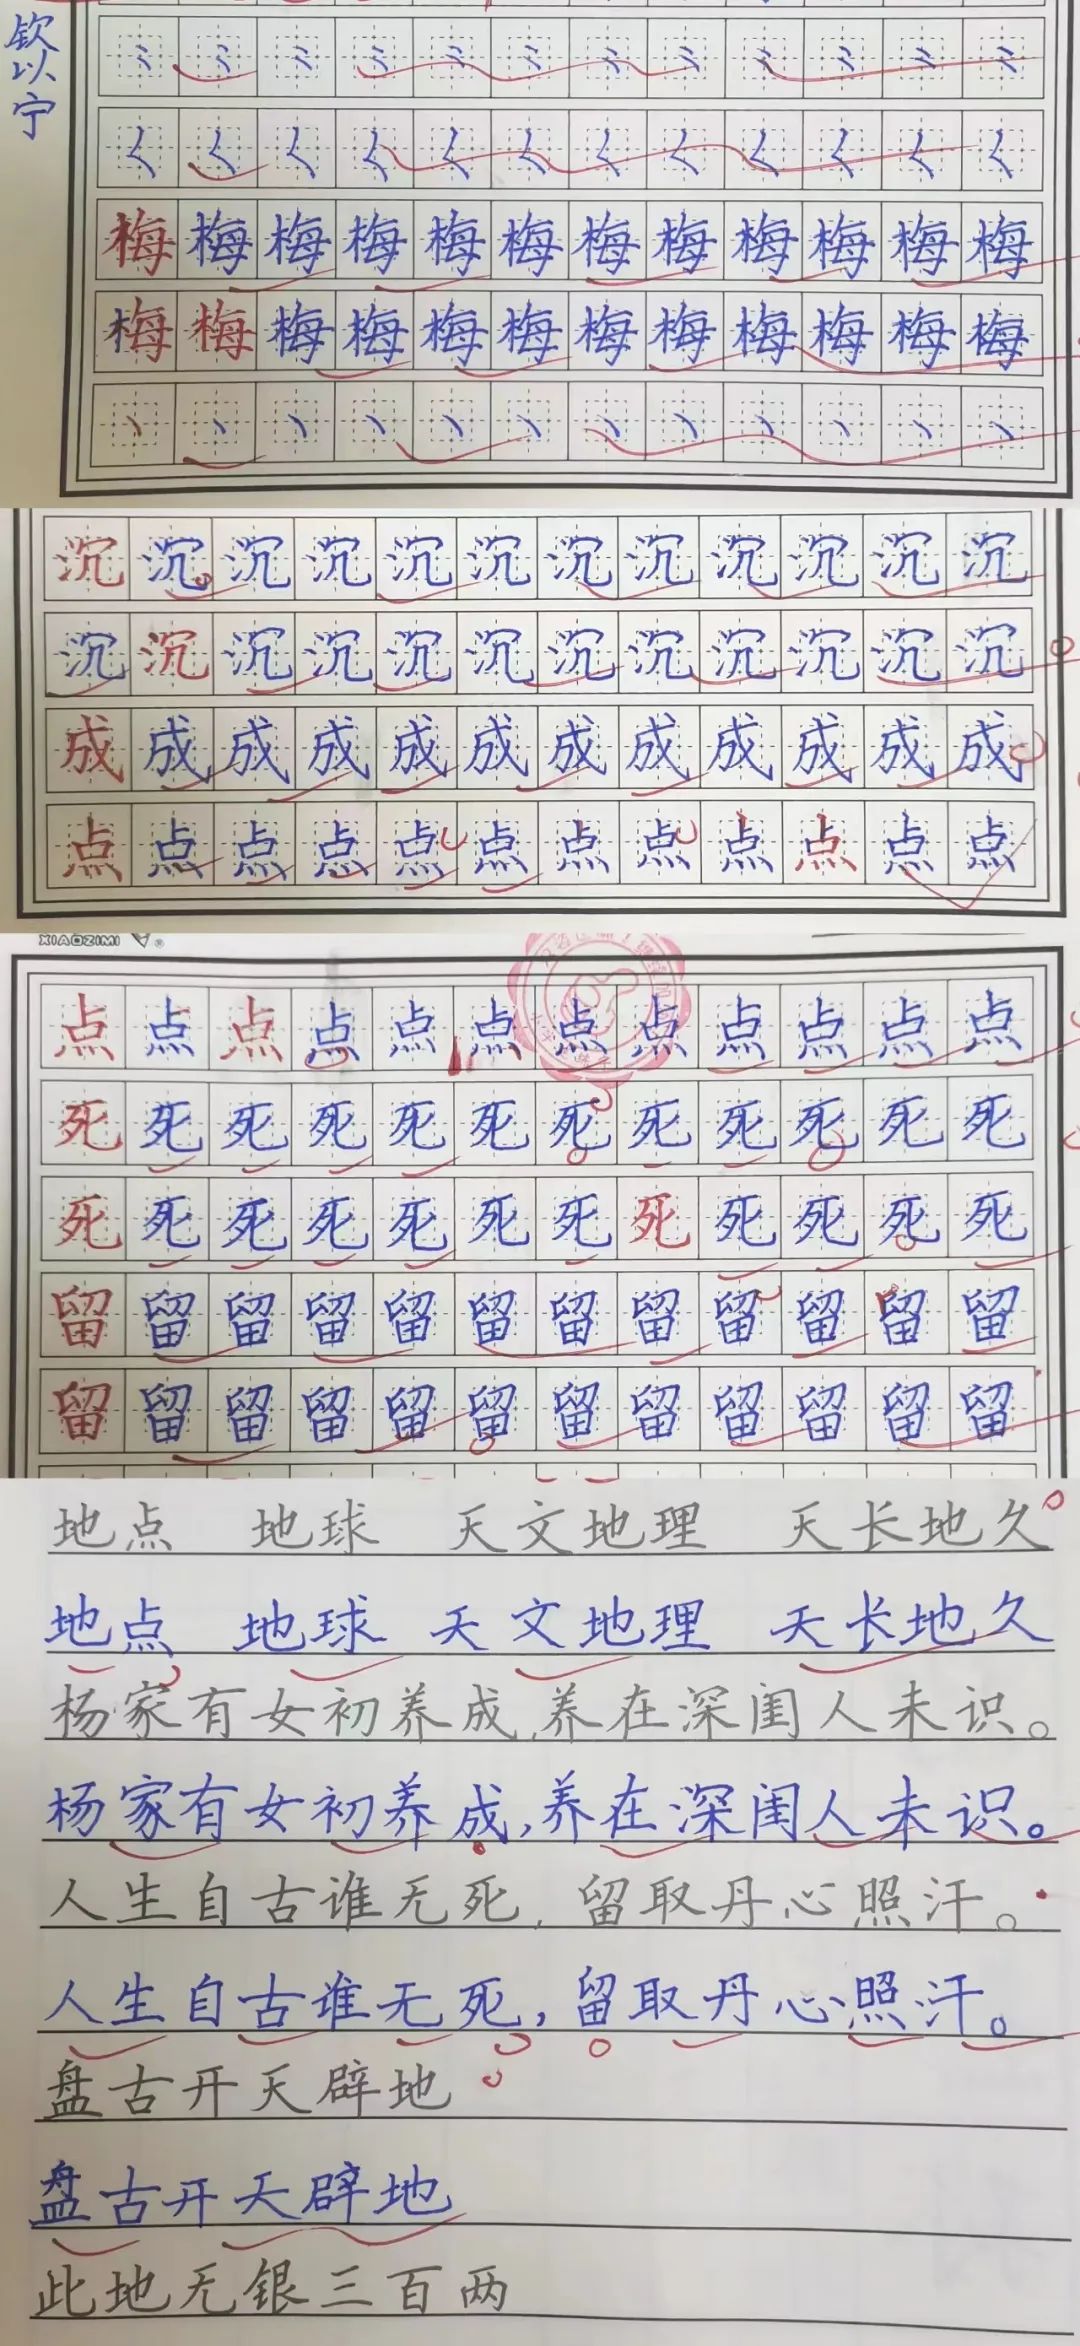 钦以宁
梅梅梅梅梅梅梅梅梅梅梅梅
梅梅梅梅梅梅梅梅梅梅梅梅
沉沉沉沉沉沉沉沉沉沉沉沉
沉沉沉沉沉沉沉沉沉沉沉沉
成成成成成成成成成成成成
点点点点点点点点点点点点
XIAOZIMI
点点点点点点点点点点点点
死死死死死死死死死死死死
死死死死死死死死死死死死
留留留留留留留留留留留留
留留留留留留留留留留留留
地点 地球 天文地理 天长地久
地点 地球 天文地理 天长地久
杨家有女初养成,养在深闺人未识。
杨家有女初养成,养在深闺人未识。
人生自古谁无死,留取丹心照汗。
人生自古谁无死,留取丹心照汗。
盘古开天辟地
盘古开天辟地
此地无银三百两